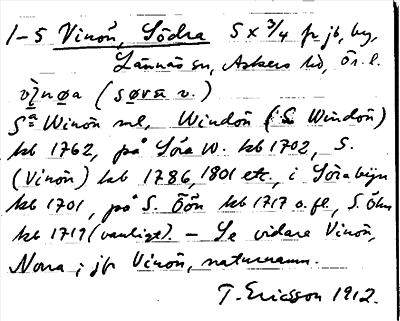 1-5 Vinön, Södra 5 x 3/4 fr jb, by,
Lännäs sn, Askers hd, Ör. l.
vı̀nøa (søvra v.)
Sa Winön ml, Windön (: S Windön)
kb 1762, på Söra W. kb 1702, S.
(Vinön) kb 1786, 1801 etc., i Söra byn
kb 1701, på S. Öön kb 1717 o. fl., S. Öhn
kb 1717 (vanligt). – Se vidare Vinön,
Norra, i jfr Vinön, naturnamn.
T. Ericsson 1912.